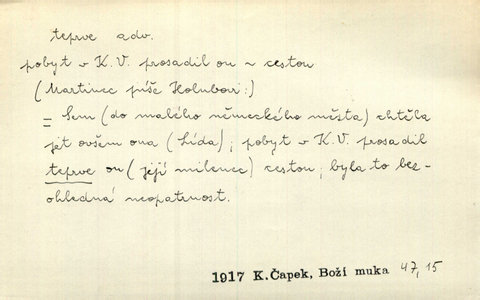 teprve adv.
pobyt v K. V. prosadil on ~ cestou
(Martinec píše Holubovi:)
= Sem (do malého německého města) chtěla
jet ovšem ona (Lída); pobyt v K. V. prosadil
teprve on (její milenec) cestou; byla to bez-
ohledná neopatrnost.
1917 K.Čapek, Boží muka 47,15